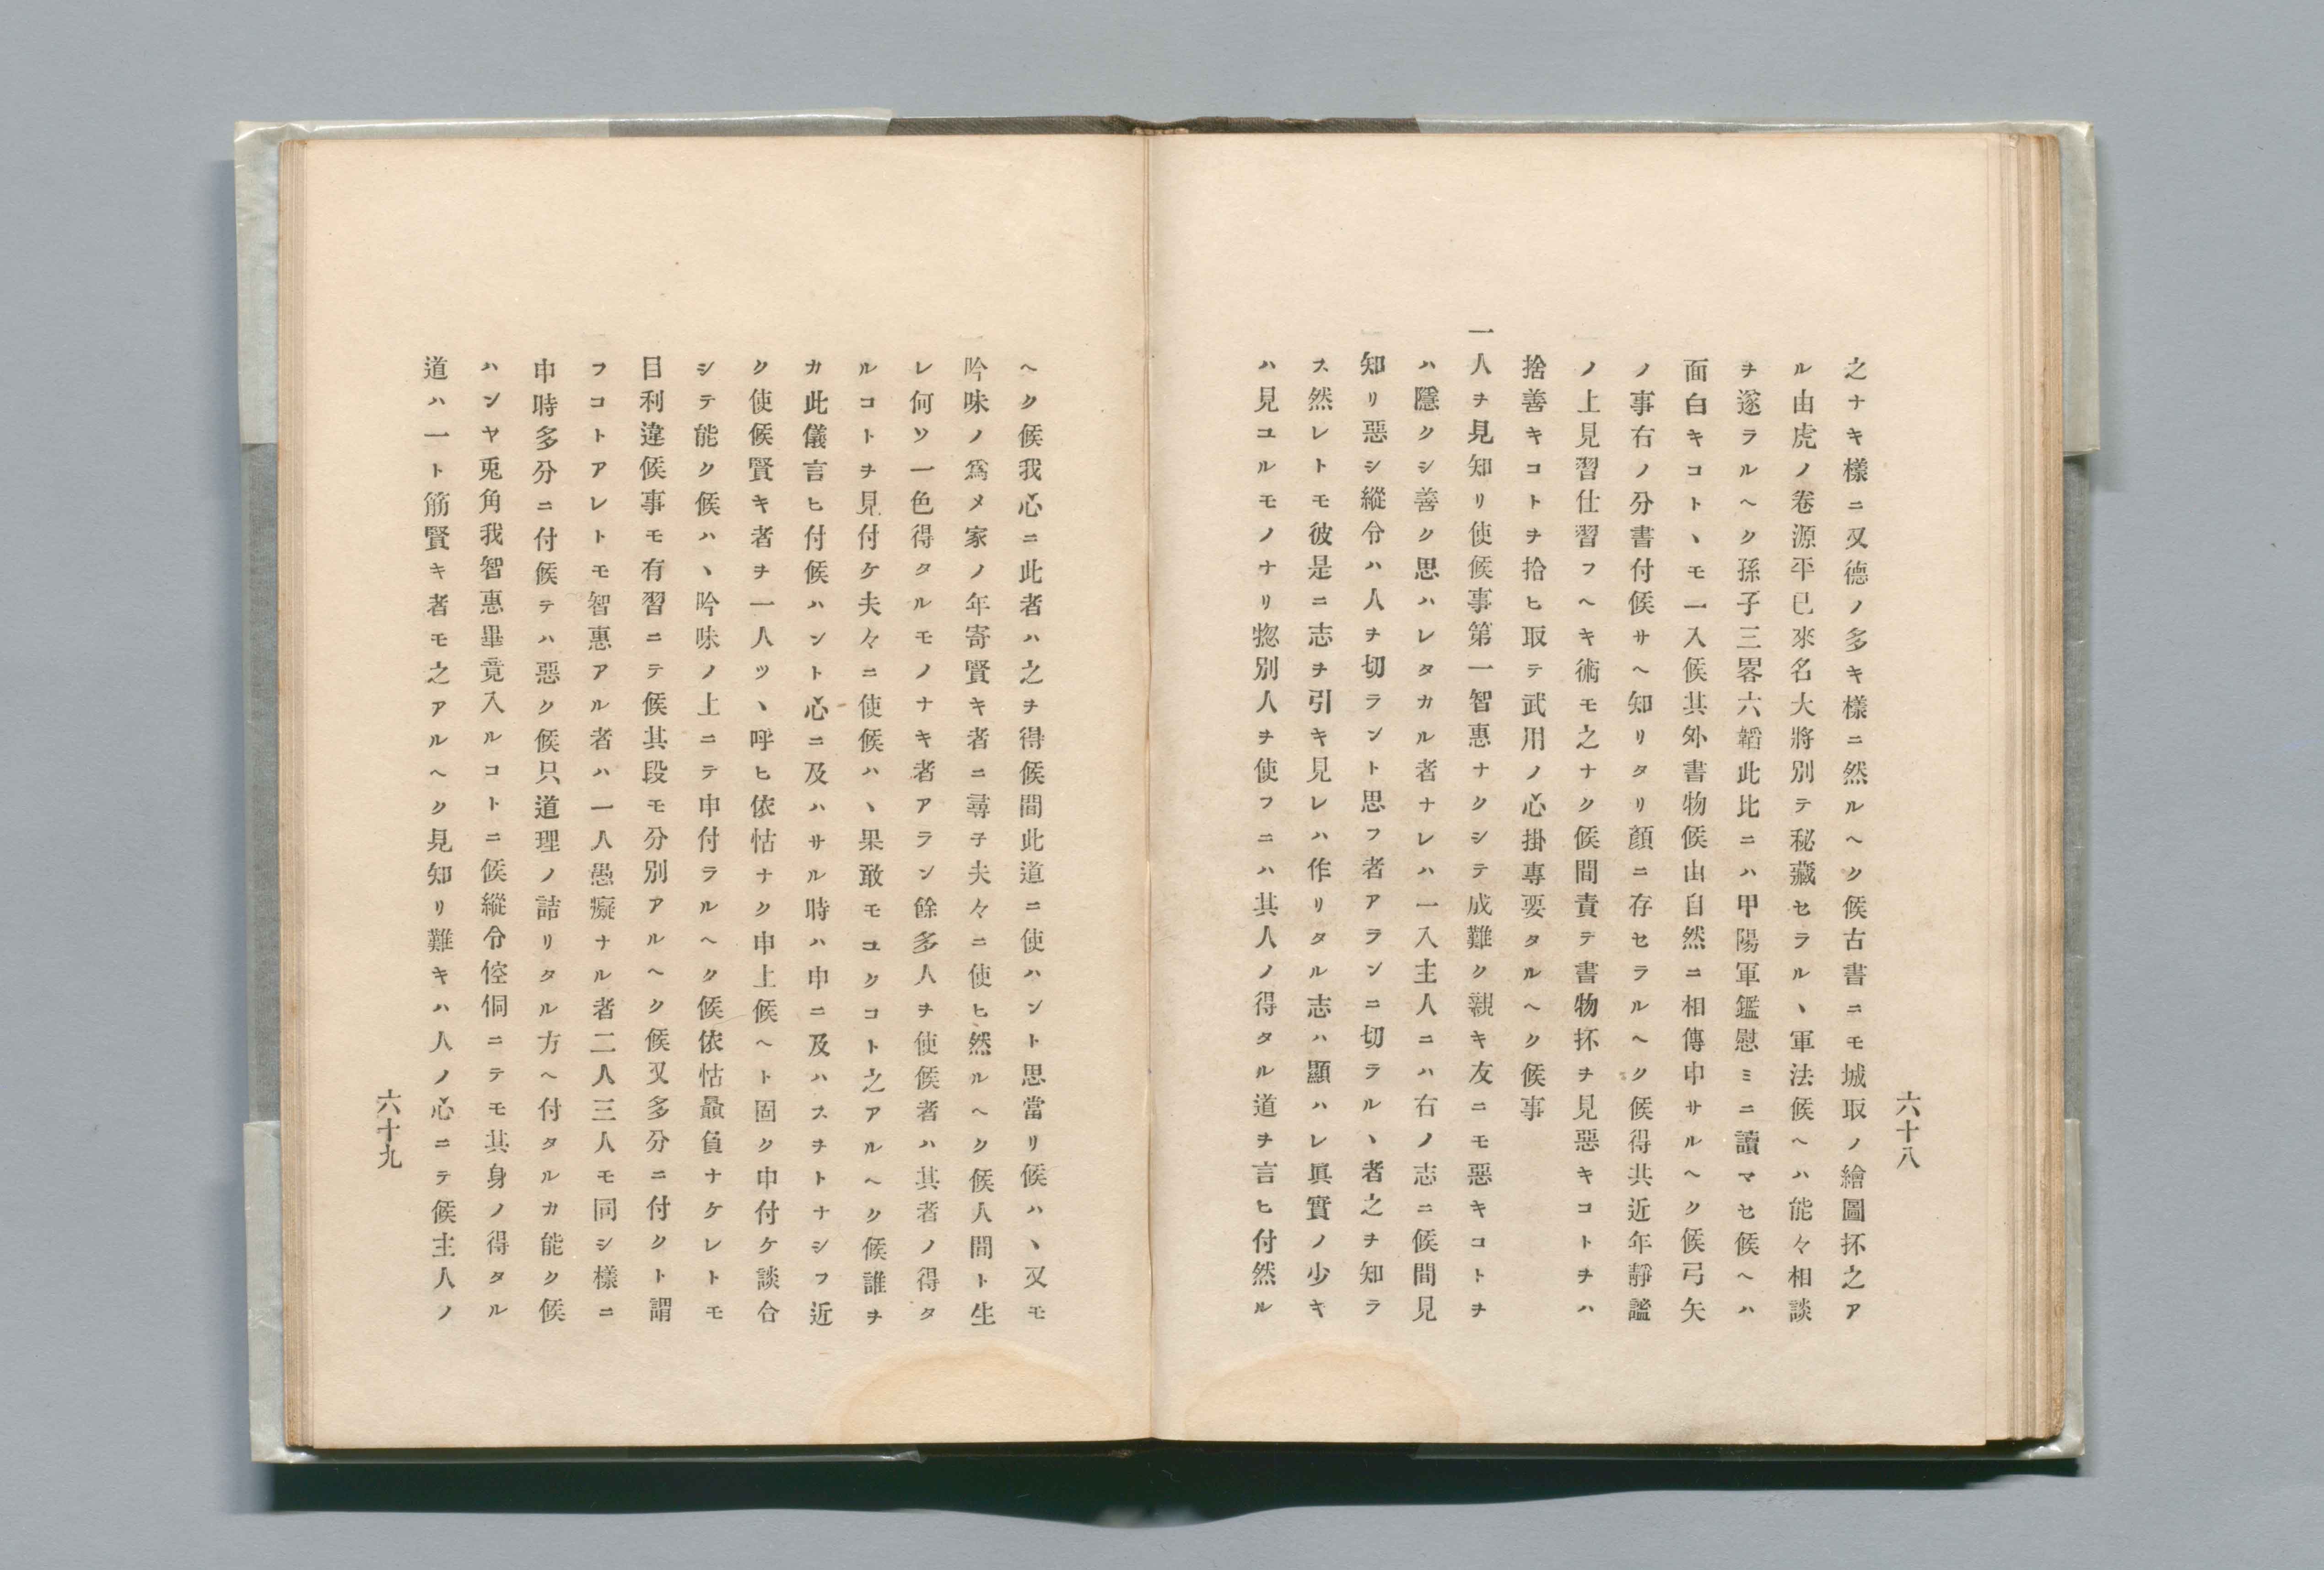 六十八
之ナキ樣ニ又德ノ多キ樣ニ然ルヘク候古書ニモ城取ノ繪圖抔之ア
ル由虎ノ卷源平已來名大將別テ秘藏セラルヽ軍法候ヘハ能々相談
ヲ遂ラルヘク孫子三畧六韜此比ニハ甲陽軍鑑慰ミニ讀マセ候ヘハ
面白キコトヽモ一入候其外書物候由自然ニ相傳申サルヘク候弓矢
ノ事右ノ分書付候サヘ知リタリ顏ニ存セラルヘク候得共近年靜謐
ノ上見習仕習フヘキ術モ之ナク候間責テ書物抔ヲ見惡キコトヲハ
捨善キコトヲ拾ヒ取テ武用ノ心掛專要タルヘク候事
一人ヲ見知リ使候事第一智惠ナクシテ成難ク親キ友ニモ惡キコトヲ
ハ隱クシ善ク思ハレタカル者ナレハ一入主人ニハ右ノ志ニ候間見
知リ惡シ縱令ハ人ヲ切ラント思フ者アランニ切ラルヽ者之ヲ知ラ
ス然レトモ彼是ニ志ヲ引キ見レハ作リタル志ハ顯ハレ眞實ノ少キ
ハ見ユルモノナリ惣別人ヲ使フニハ其人ノ得タル道ヲ言ヒ付然ル
ヘク候我心ニ此者ハ之ヲ得候間此道ニ使ハント思當リ候ハヽ又モ
吟味ノ爲メ家ノ年寄賢キ者ニ尋子夫々ニ使ヒ然ルヘク候人間ト生
レ何ソ一色得タルモノナキ者アラン餘多人ヲ使候者ハ其者ノ得タ
ルコトヲ見付ケ夫々ニ使候ハヽ果敢モユクコト之アルヘク候誰ヲ
カ此儀言ヒ付候ハント心ニ及ハサル時ハ申ニ及ハスヲトナシフ近
ク使候賢キ者ヲ一人ツヽ呼ヒ依怙ナク申上候ヘト固ク申付ケ談合
シテ能ク候ハヽ吟味ノ上ニテ申付ラルヘク候依怙贔負ナケレトモ
目利違候事モ有習ニテ候其段モ分別アルヘク候又多分ニ付クト謂
フコトアレトモ智惠アル者ハ一人愚癡ナル者二人三人モ同シ樣ニ
申時多分ニ付候テハ惡ク候只道理ノ詰リタル方ヘ付タルカ能ク候
ハンヤ兎角我智惠畢竟入ルコトニ候縱令倥侗ニテモ其身ノ得タル
道ハ一ト筋賢キ者モ之アルヘク見知リ難キハ人ノ心ニテ候主人ノ
六十九